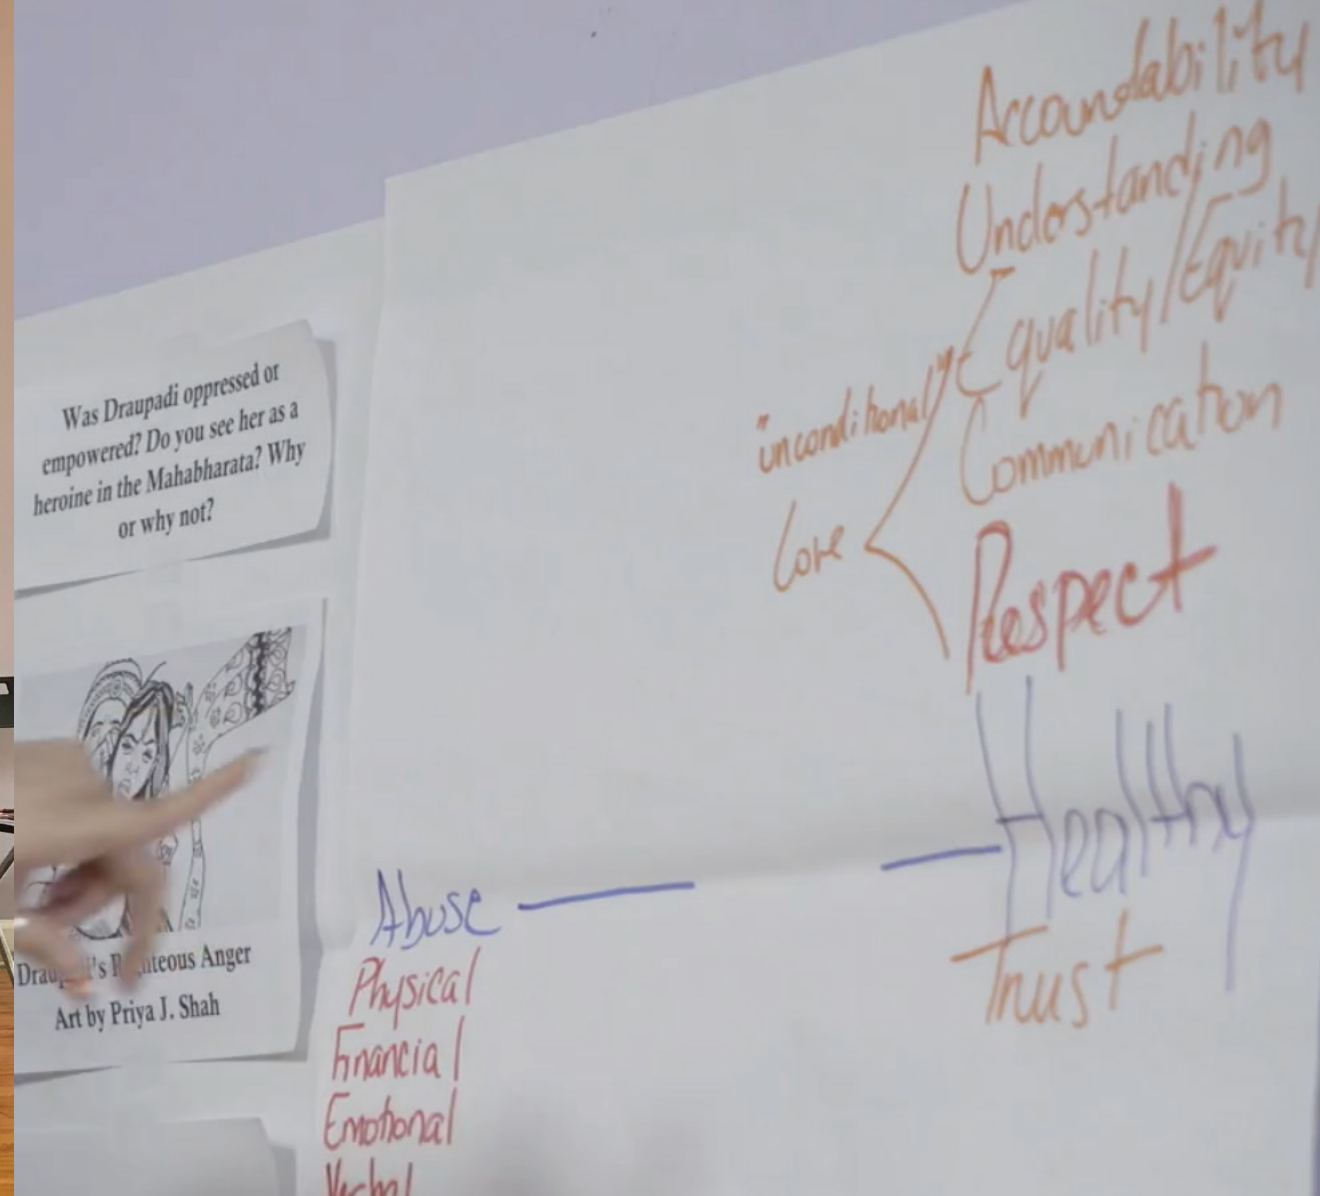 Was Draupadi oppressed or
empowered? Do you see her as a
heroine in the Mahabharata? Why
or why not?
Art by Priya J. Shah
Anger
Accoundability
Understanding
Equality/Equity
Communication
"unconditional"
Love
Respect
Healthy
Trust
Abuse
Physical
Financial
Emotional
Verbal